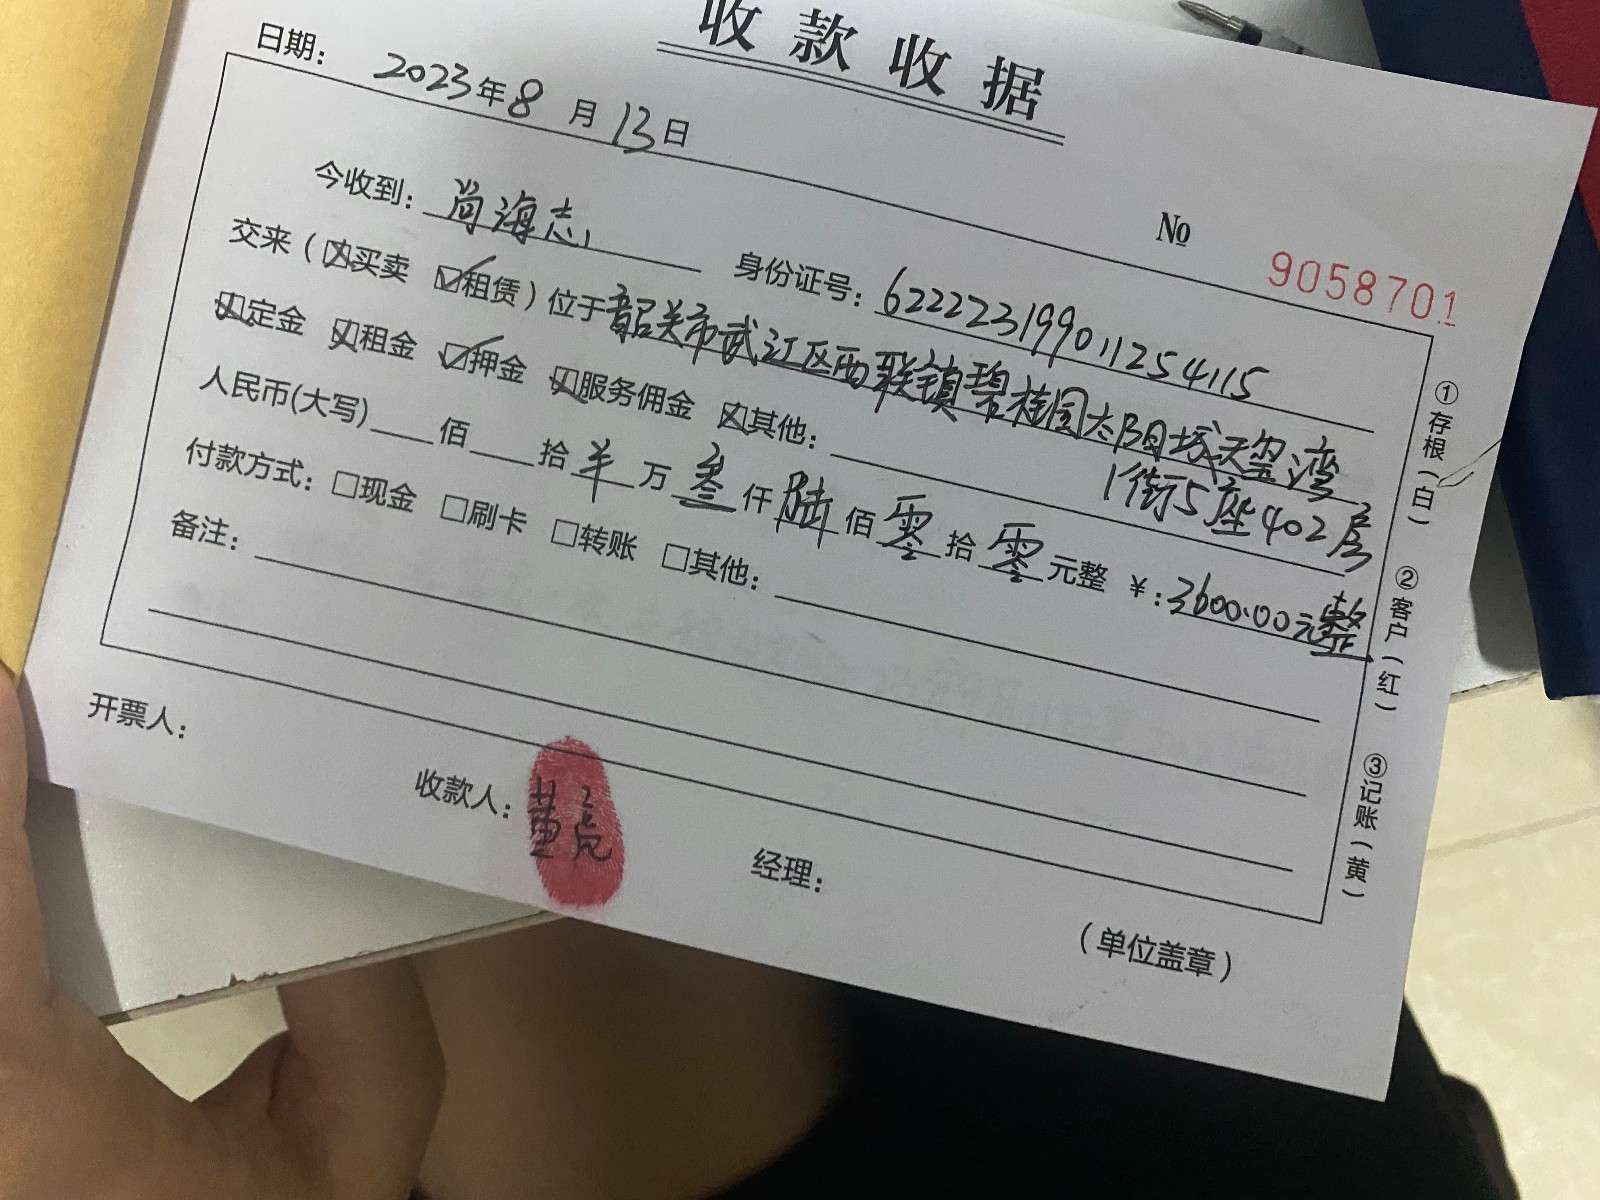 收款收据
日期: 2023年8月13日
№ 9058701
今收到: 尚海志 身份证号: 622223199011254115
交来(☒买卖 ☑租赁)位于韶关市武江区西联镇碧桂园太阳城天玺湾
1街5座402房
☒定金 ☒租金 ☑押金 ☒服务佣金 ☒其他:
人民币(大写) 佰 拾 羊 万 叁 仟 陆 佰 零 拾 零 元整 ¥:3600.00元整
付款方式: □现金 □刷卡 □转账 □其他:
备注:
开票人:
收款人: 黄亮
经理:
(单位盖章)
①存根(白)
②客户(红)
③记账(黄)